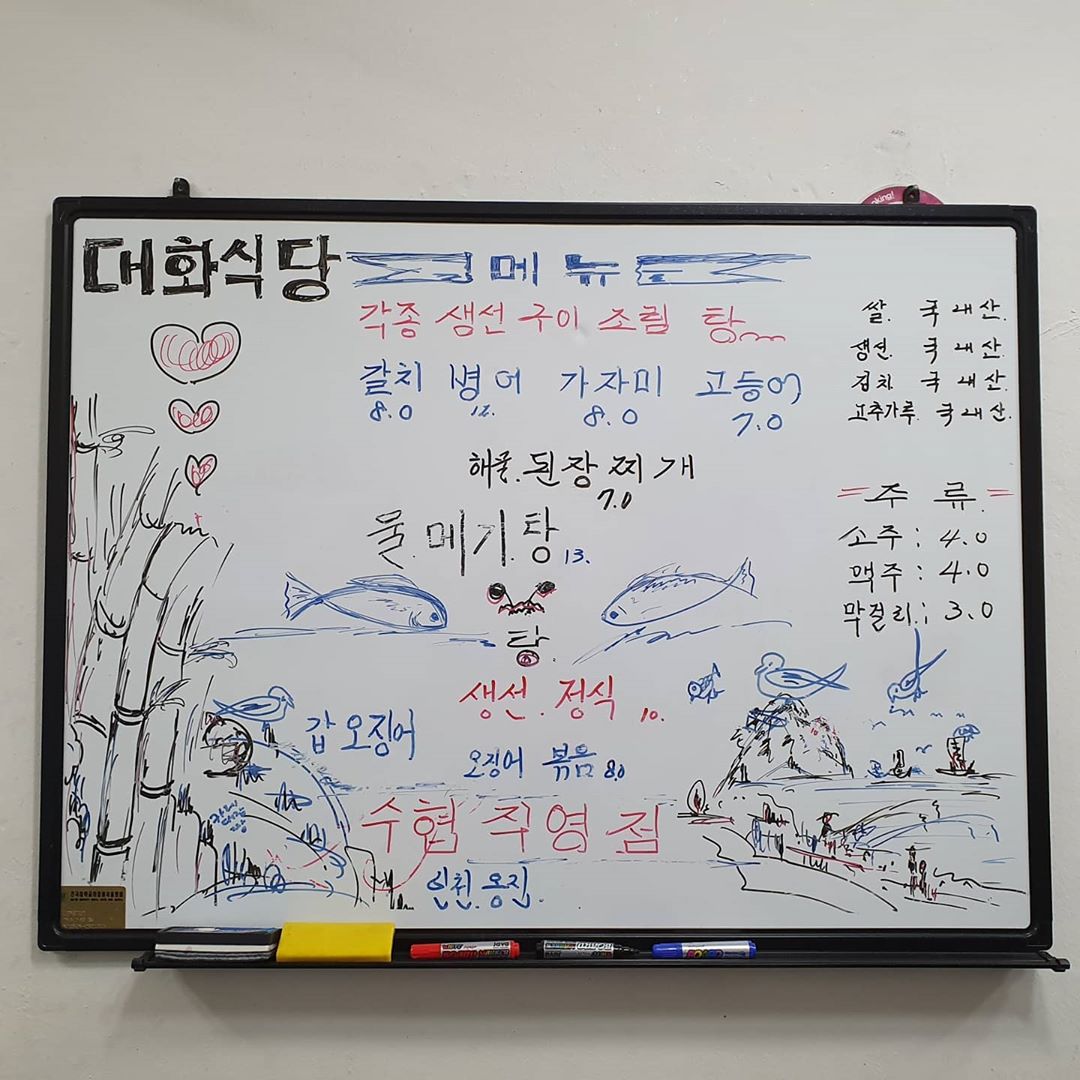 대화식당 메뉴
각종 생선 구이 조림 탕
갈치 병어 가자미 고등어
8.0 12. 8.0 7.0
해물.된장찌개
7.0
물.메기.탕 13.
탕
생선.정식 10.
갑오징어
오징어 볶음 8.0
수협 직영점
인천.옹진.
쌀. 국내산.
생선. 국내산.
김치. 국내산.
고추가루. 국내산.
= 주류 =
소주 : 4.0
맥주 : 4.0
막걸리 : 3.0